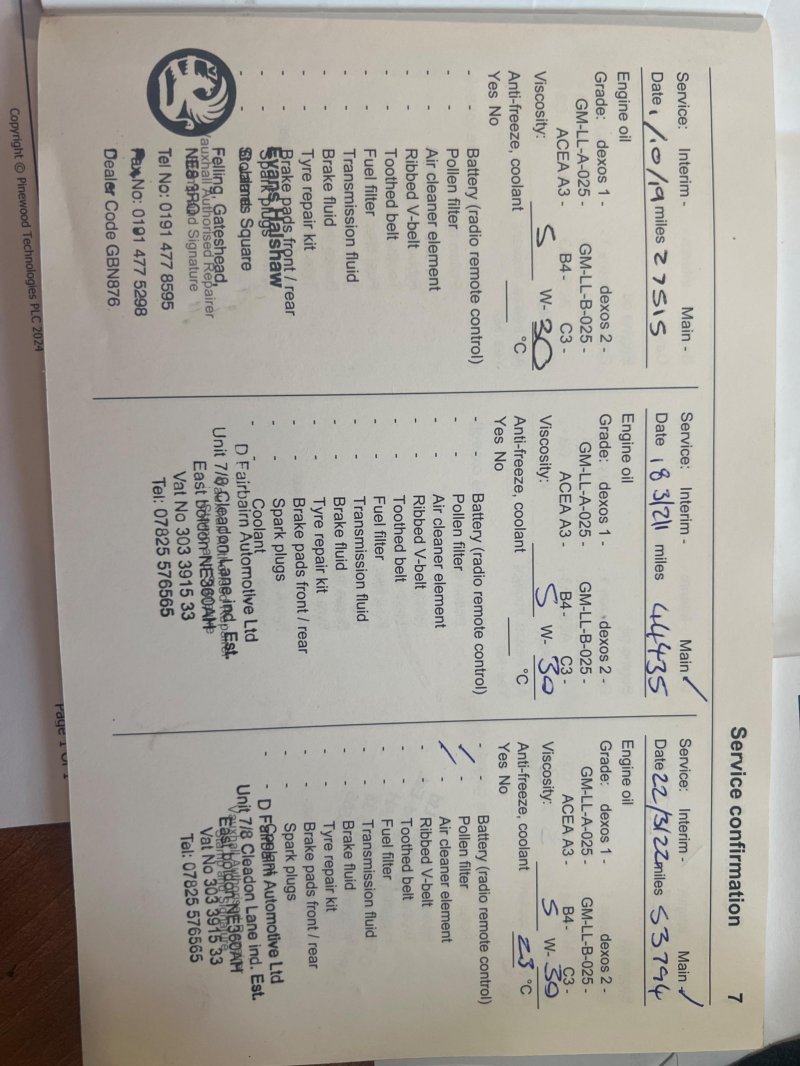 Service confirmation 7
Service: Interim - Main -
Date 1/10/19 miles 27515
Engine oil
Grade: dexos 1 - dexos 2 -
GM-LL-A-025 - GM-LL-B-025 -
ACEA A3 - B4 - C3 -
Viscosity: 5 W- 30
Anti-freeze, coolant °C
Yes No
- - Battery (radio remote control)
- - Pollen filter
- - Air cleaner element
- - Ribbed V-belt
- - Toothed belt
- - Fuel filter
- - Transmission fluid
- - Brake fluid
- - Tyre repair kit
- - Brake pads front / rear
- - Spark plugs
Evans Halshaw
Square
Felling, Gateshead,
Vauxhall Authorised Repairer
NE8 3RQ
Stamp and Signature
Tel No: 0191 477 8595
Fax No: 0191 477 5298
Dealer Code GBN876
Service: Interim - Main ✓
Date 18 3/21 miles 44435
Engine oil
Grade: dexos 1 - dexos 2 -
GM-LL-A-025 - GM-LL-B-025 -
ACEA A3 - B4 - C3 -
Viscosity: 5 W- 30
Anti-freeze, coolant °C
Yes No
- - Battery (radio remote control)
- - Pollen filter
- - Air cleaner element
- - Ribbed V-belt
- - Toothed belt
- - Fuel filter
- - Transmission fluid
- - Brake fluid
- - Tyre repair kit
- - Brake pads front / rear
- - Spark plugs
- - Coolant
D Fairbairn Automotive Ltd
Unit 7/8 Cleadon Lane ind. Est.
East boldon NE360AH
Vat No 303 3915 33
Tel: 07825 576565
Service: Interim - Main ✓
Date 22/3/22 miles 53794
Engine oil
Grade: dexos 1 - dexos 2 -
GM-LL-A-025 - GM-LL-B-025 -
ACEA A3 - B4 - C3 -
Viscosity: 5 W- 30
Anti-freeze, coolant 23 °C
Yes No
- - Battery (radio remote control)
✓ - Pollen filter
✓ - Air cleaner element
- - Ribbed V-belt
- - Toothed belt
- - Fuel filter
- - Transmission fluid
- - Brake fluid
- - Tyre repair kit
- - Brake pads front / rear
- - Spark plugs
- - Coolant
D Fairbairn Automotive Ltd
Unit 7/8 Cleadon Lane ind. Est.
East boldon NE360AH
Vat No 303 3915 33
Tel: 07825 576565
Copyright © Pinewood Technologies PLC 2024
Page 1 of 1